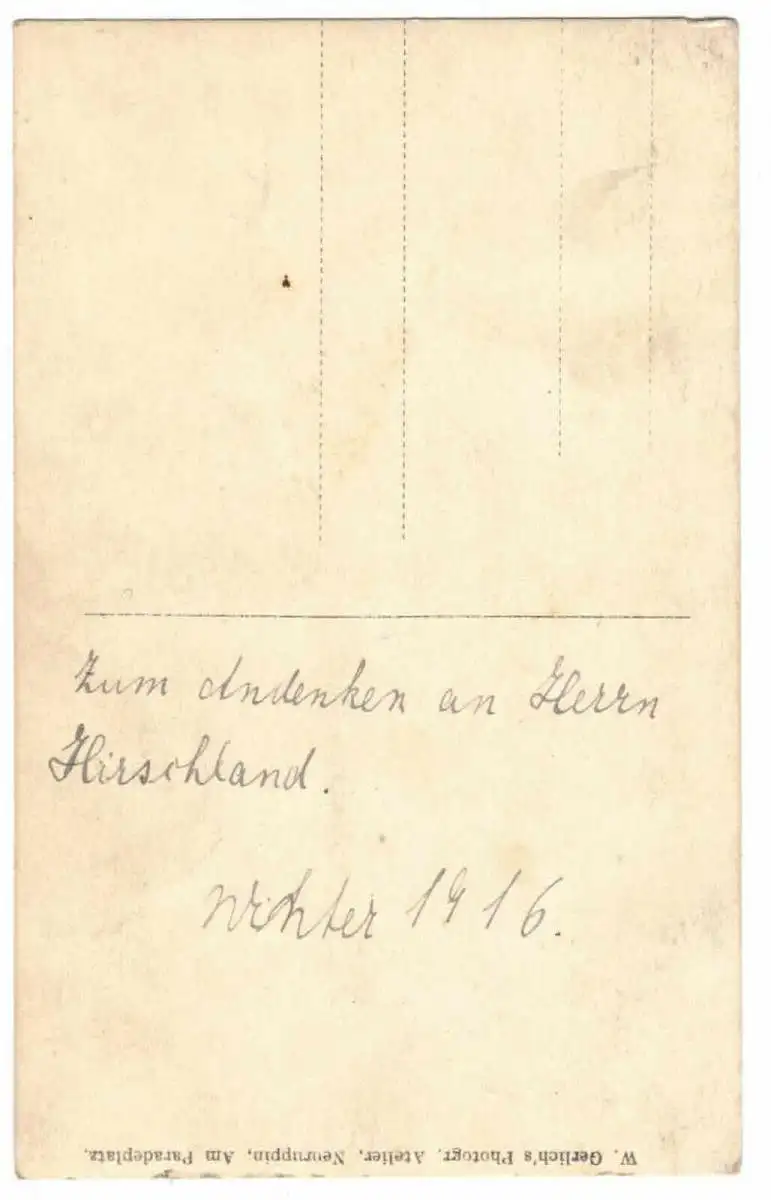 Zum Andenken an Herrn
Hirschland.
Winter 1916.
W. Gerlich's Photogr. Atelier, Neuruppin, Am Paradeplatz.